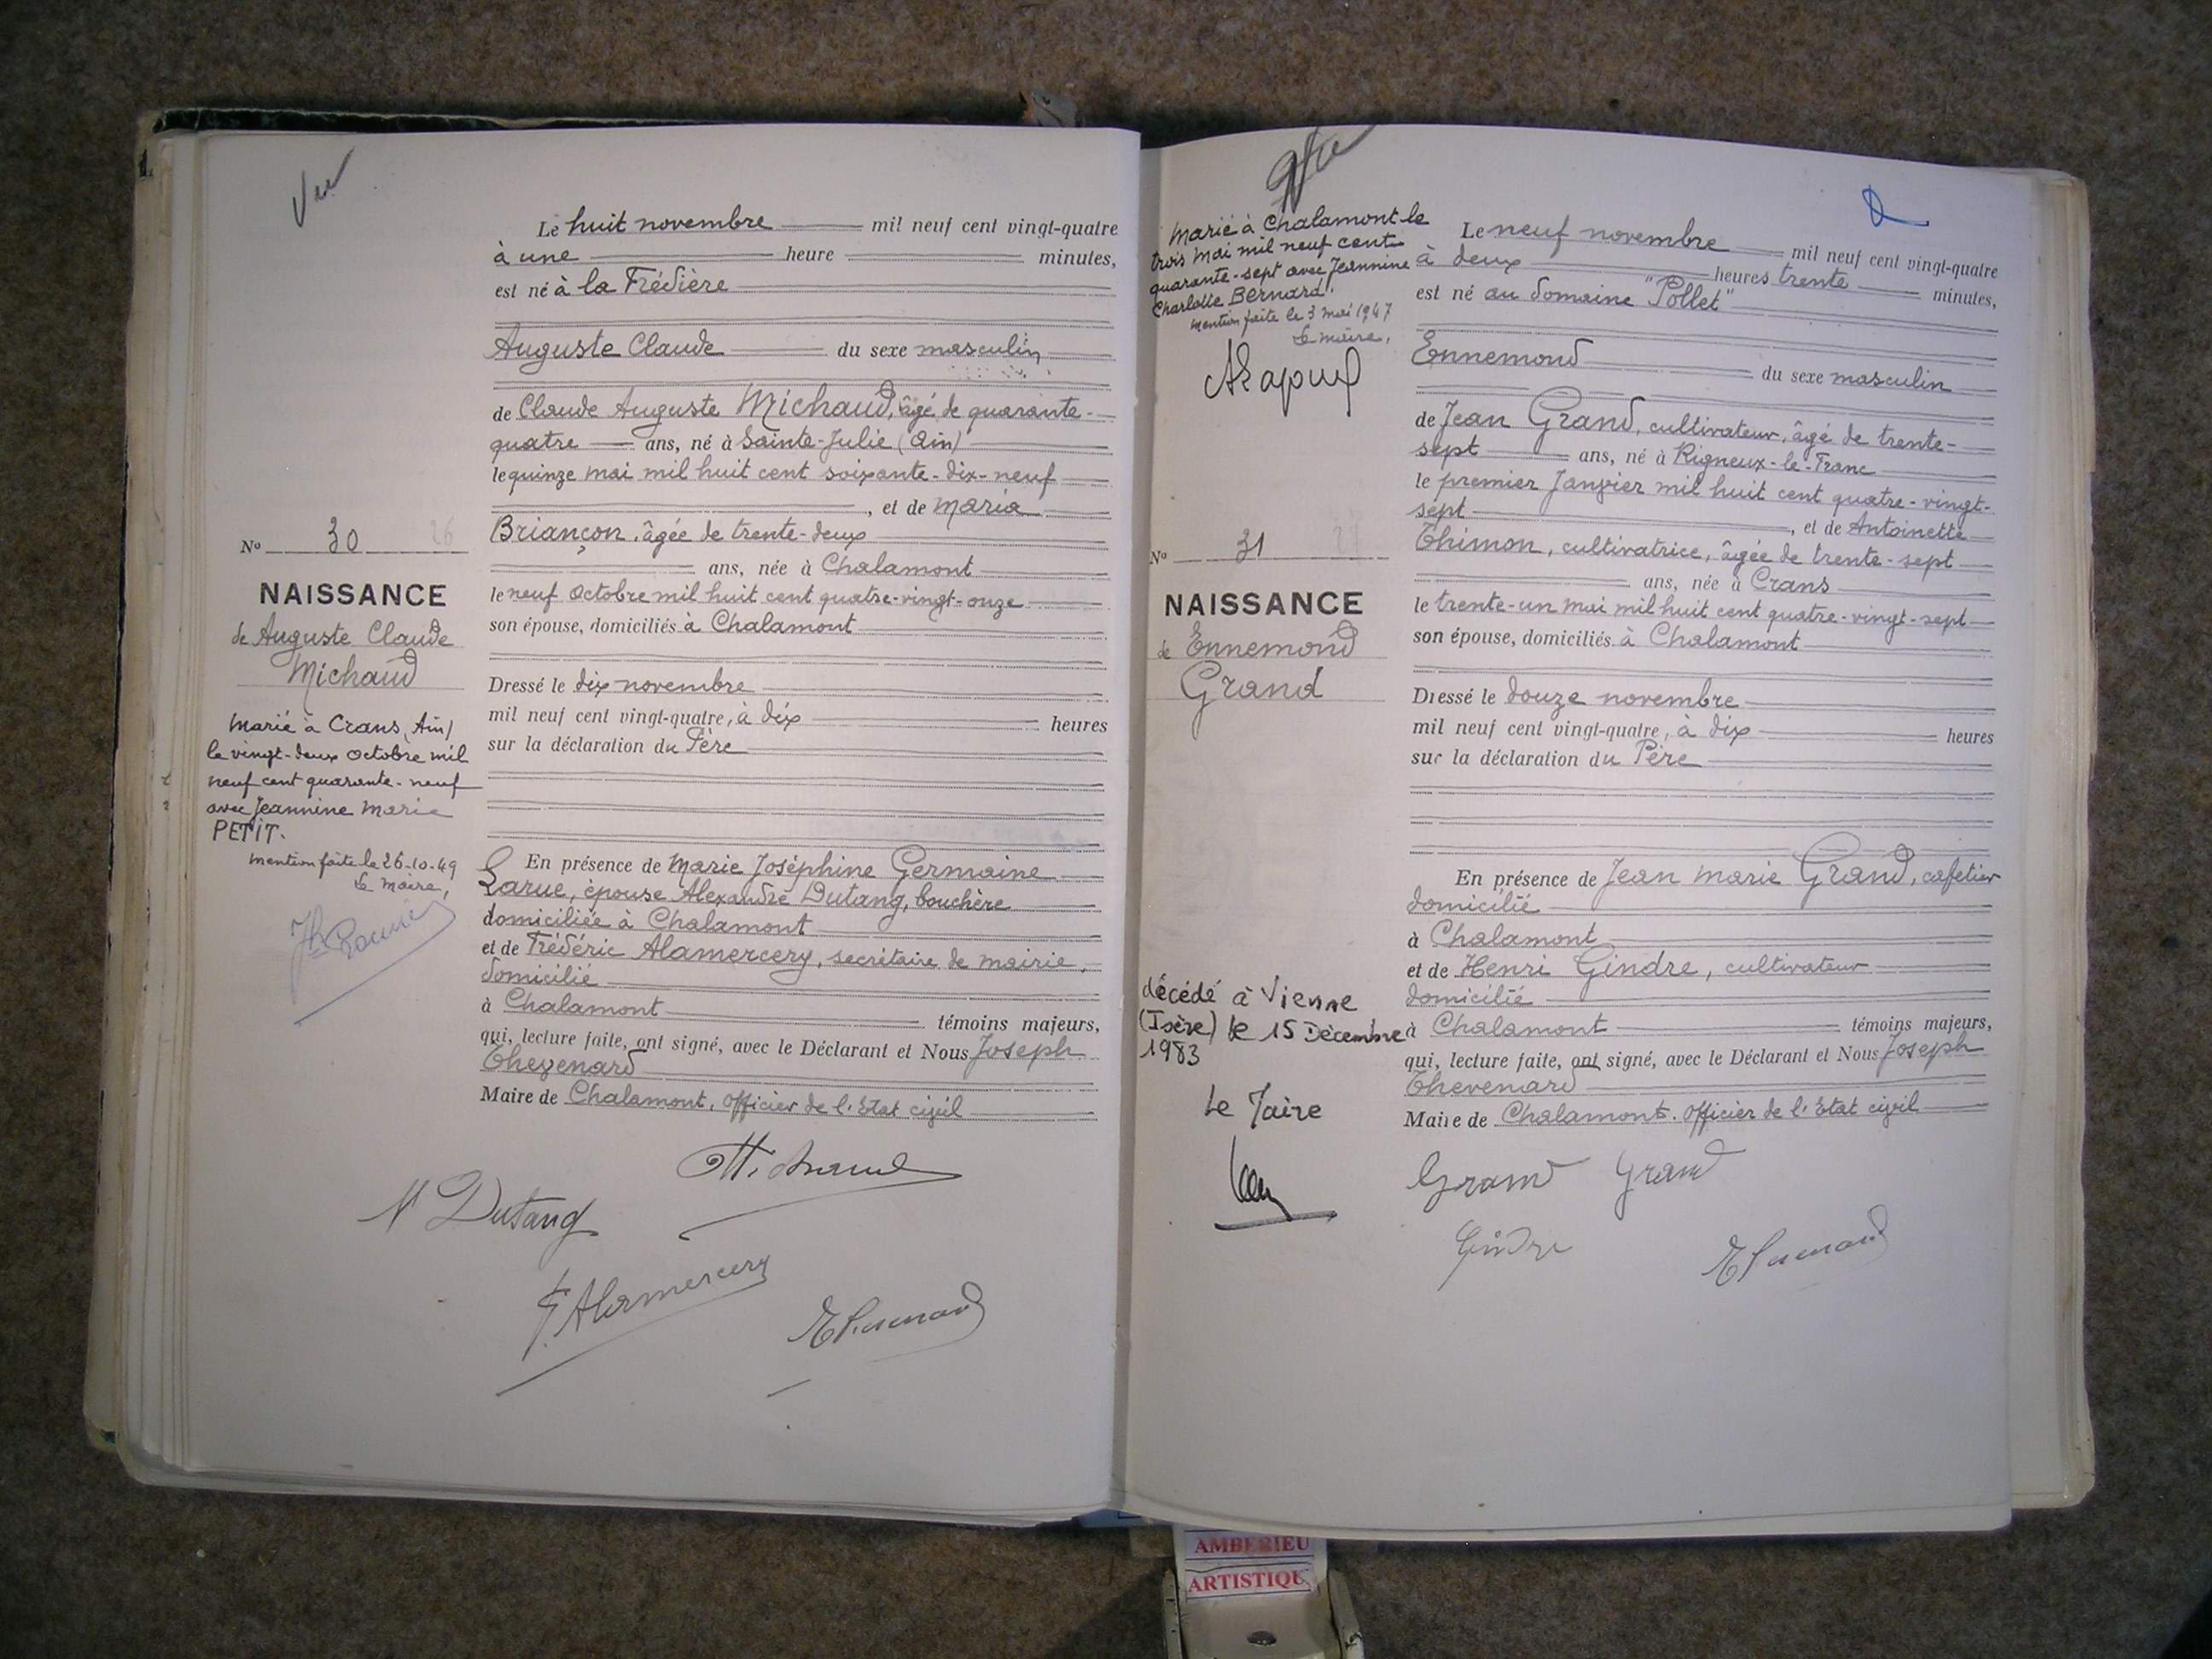 Vu
Le huit novembre mil neuf cent vingt-quatre
à une heure minutes,
est né à la Frédière
Auguste Claude du sexe masculin
de Claude Auguste Michaud, âgé de quarante-
quatre ans, né à Sainte-Julie (Ain)
le quinze mai mil huit cent soixante-dix-neuf
, et de Maria
Briançon, âgée de trente-deux
ans, née à Chalamont
le neuf Octobre mil huit cent quatre-vingt-onze
son épouse, domiciliés à Chalamont
Dressé le dix novembre
mil neuf cent vingt-quatre, à dix heures
sur la déclaration du Père
En présence de Marie Joséphine Germaine
Larue, épouse Alexandre Dutang, bouchère
domiciliée à Chalamont
et de Frédéric Alamercery, secrétaire de mairie,
domicilié
à Chalamont témoins majeurs,
qui, lecture faite, ont signé, avec le Déclarant et Nous Joseph
Thevenard
Maire de Chalamont, Officier de l'Etat civil
Nº 30 26
NAISSANCE
de Auguste Claude
Michaud
Marié à Crans (Ain)
le vingt-deux Octobre mil
neuf cent quarante-neuf
avec Jeannine Marie
PETIT.
Mention faite le 26-10-49
Le Maire,
Dutang
F Alamercery
Thevenard
Vu
Marié à Chalamont le
trois Mai mil neuf cent
quarante-sept avec Jeannine
Charlotte Bernard.
Mention faite le 3 mai 1947
Le Maire,
Nº 31
NAISSANCE
de Ennemond
Grand
décédé à Vienne
(Isère) le 15 Décembre
1983
Le Maire
Le neuf novembre mil neuf cent vingt-quatre
à deux heures trente minutes,
est né au domaine "Pollet"
Ennemond du sexe masculin
de Jean Grand, cultivateur, âgé de trente-
sept ans, né à Rigneux-le-Franc
le premier Janvier mil huit cent quatre-vingt-
sept , et de Antoinette
Thimon, cultivatrice, âgée de trente-sept
ans, née à Crans
le trente-un mai mil huit cent quatre-vingt-sept
son épouse, domiciliés à Chalamont
Dressé le douze novembre
mil neuf cent vingt-quatre, à dix heures
sur la déclaration du Père
En présence de Jean Marie Grand, cafetier
domicilié
à Chalamont
et de Henri Gindre, cultivateur
domicilié
à Chalamont témoins majeurs,
qui, lecture faite, ont signé, avec le Déclarant et Nous Joseph
Thevenard
Maire de Chalamont. Officier de l'Etat civil
Grand Grand
Gindre
Thevenard
AMBERIEU
ARTISTIQU